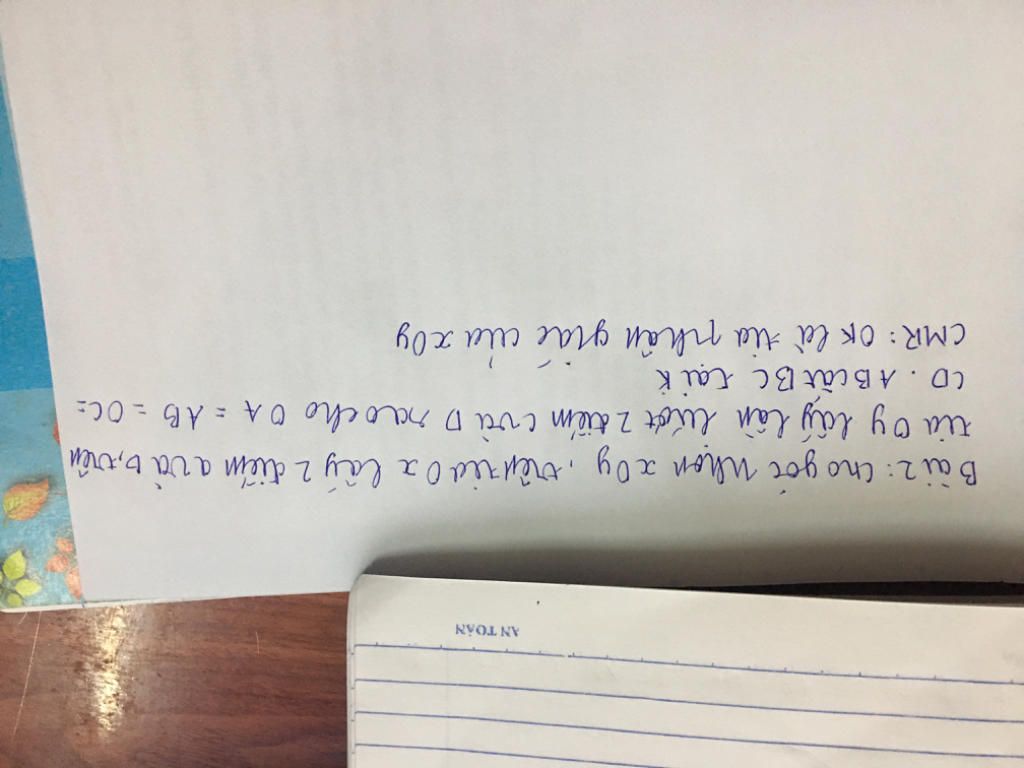 Bài 2: Cho góc nhọn xOy, trên tia Ox lấy 2 điểm a và b, trên
tia Oy lấy lần lượt 2 điểm C và D sao cho OA = AB = OC =
CD. AB cắt BC tại K
CMR: OK là tia phân giác của xOy
AN TOÀN